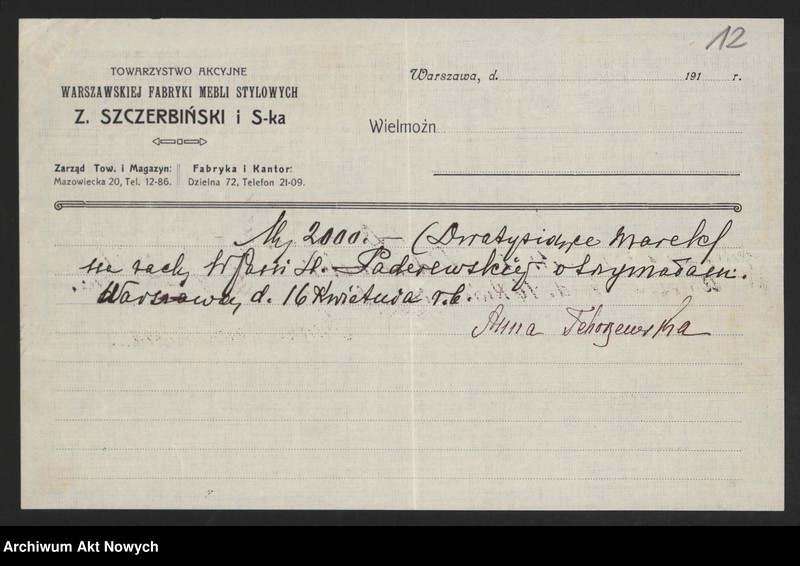 12
TOWARZYSTWO AKCYJNE
WARSZAWSKIEJ FABRYKI MEBLI STYLOWYCH
Z. SZCZERBIŃSKI i S-ka
Zarząd Tow. i Magazyn:
Mazowiecka 20, Tel. 12-86.
Fabryka i Kantor:
Dzielna 72, Telefon 21-09.
Warszawa, d. 191 r.
Wielmożn
Mk 2000.- (Dwatysiące Marek)
na rach. W Pani H. Paderewskiej otrzymałam.
Warszawa, d. 16 Kwietnia r.b.
Anna
Archiwum Akt Nowych